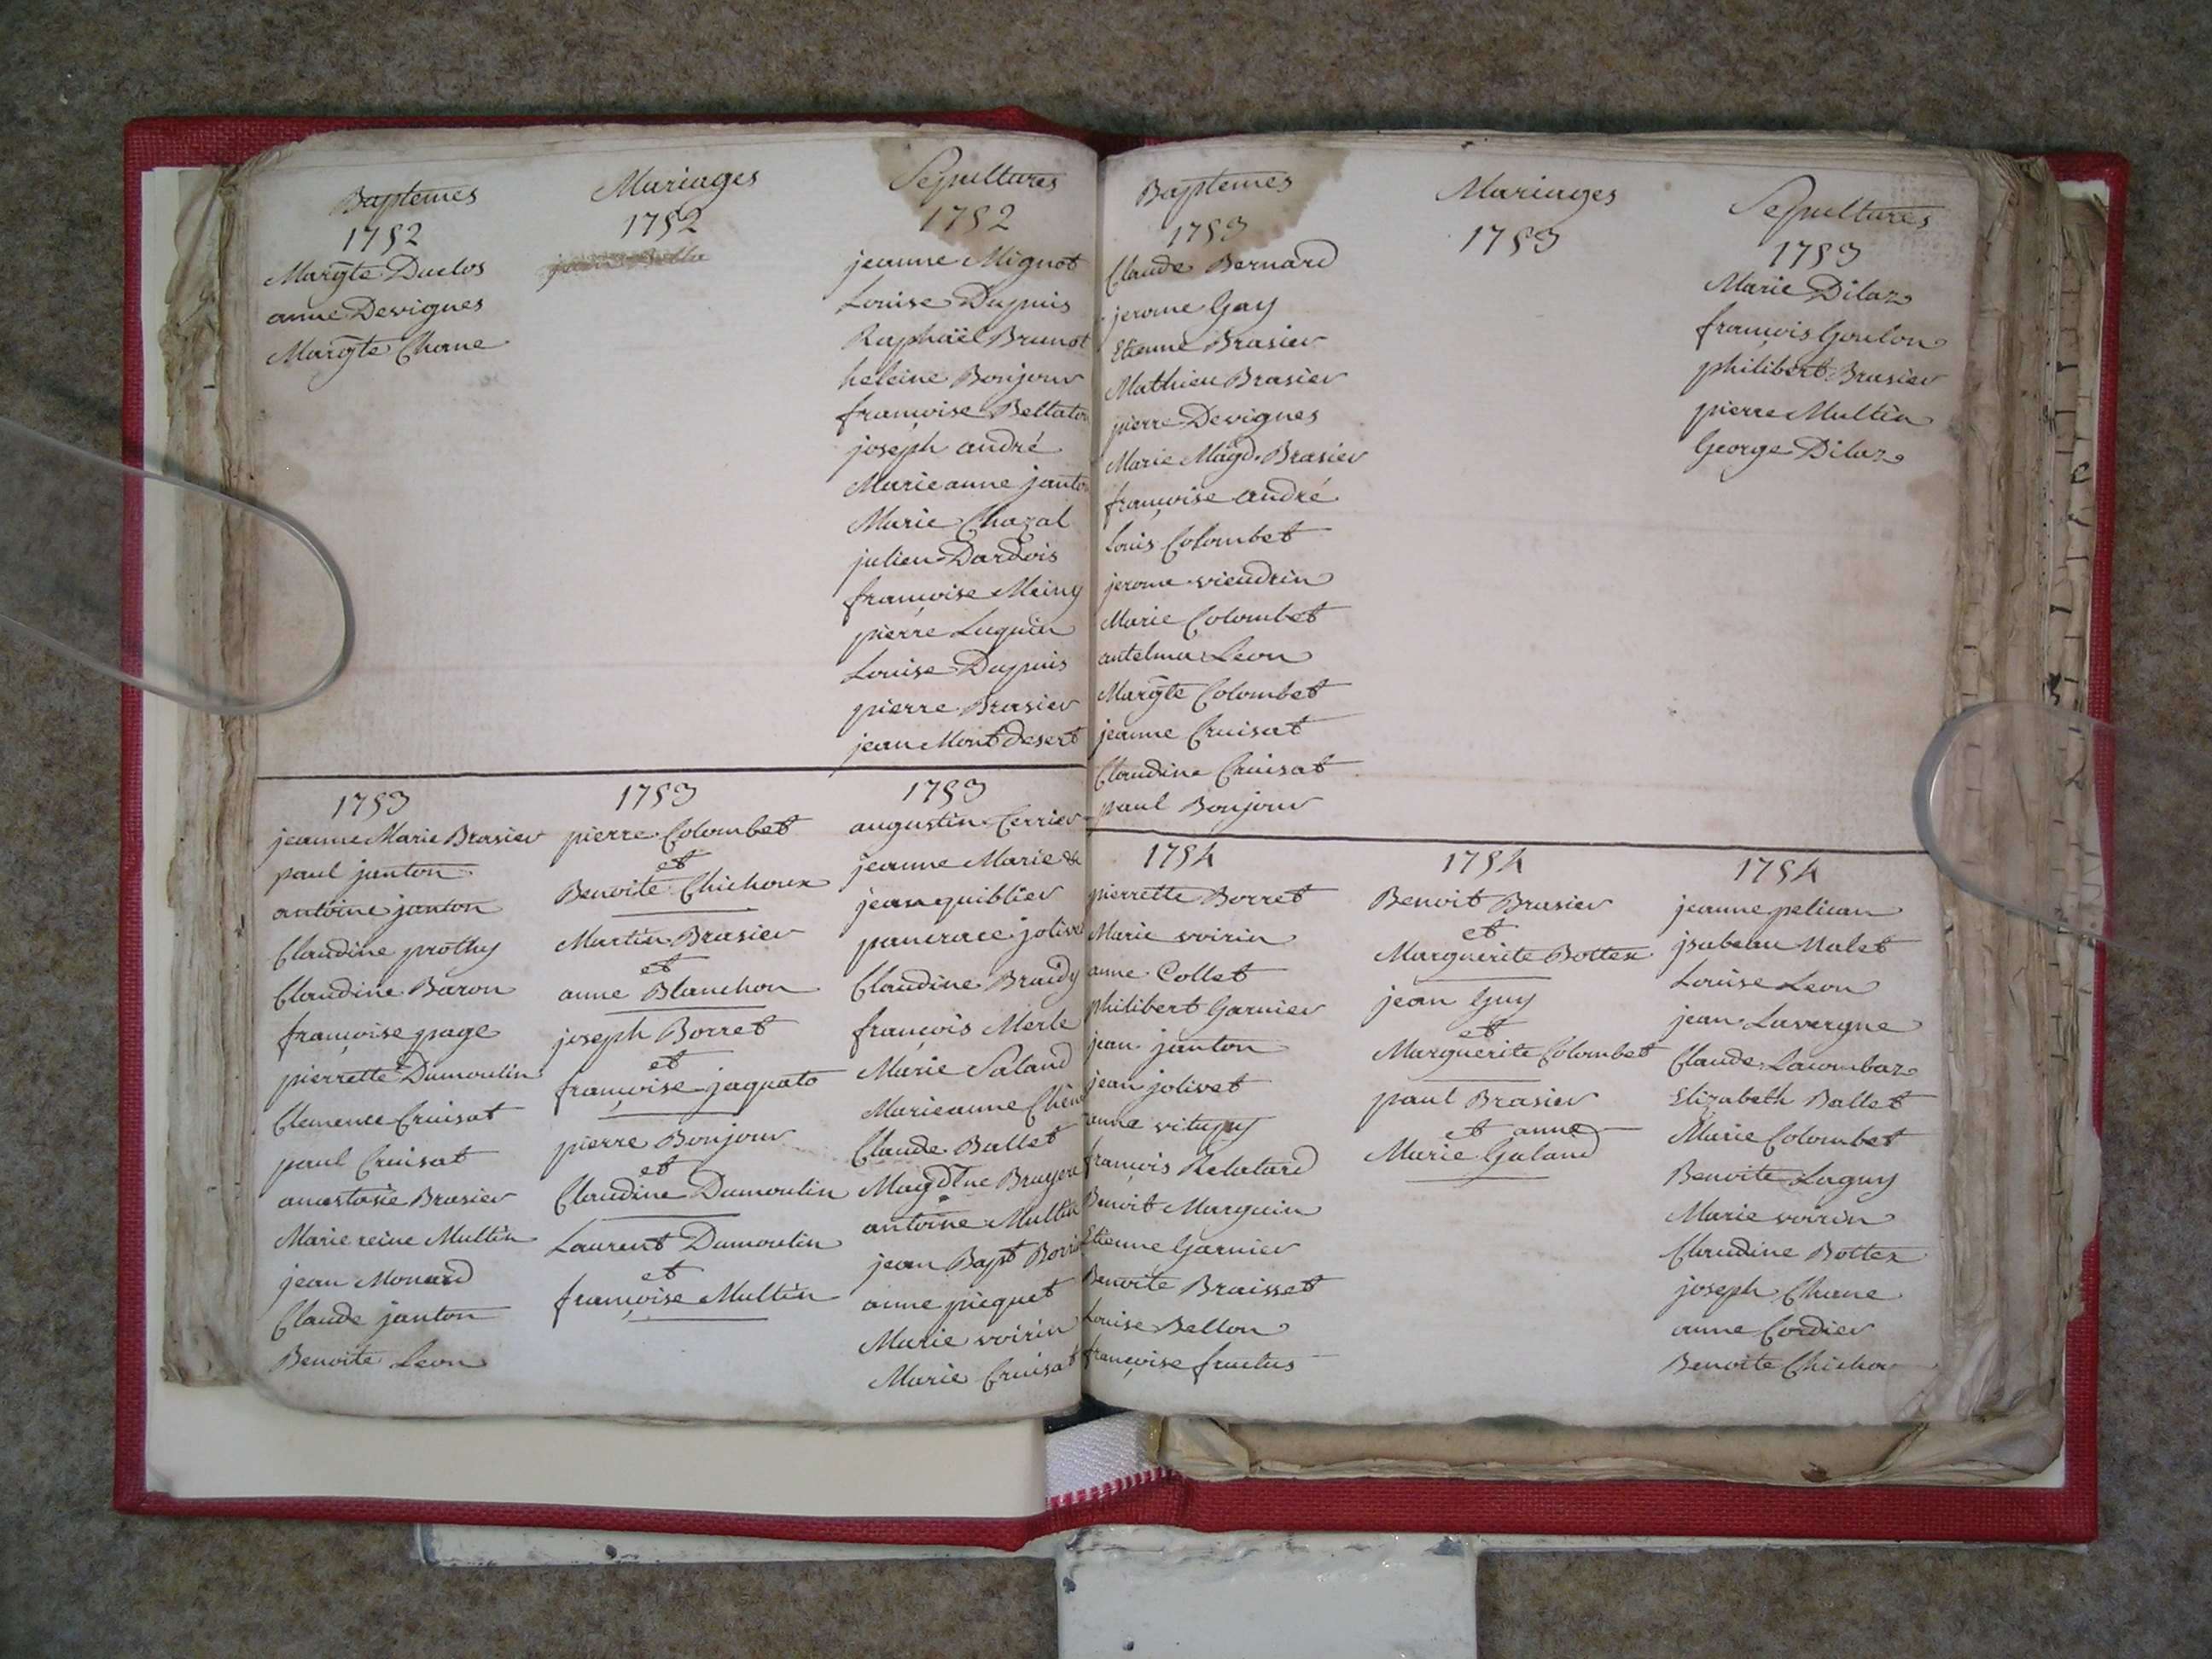 Baptemes
1752
Margte Duclos
anne Devignes
Margte Chane
Mariages
1752
Sepultures
1752
jeanne Mignot
Louise Dupuis
Raphaël Brunot
heleine Bonjour
françoise Beltaton
joseph andré
Marieanne janton
Marie Chazal
julien Dardois
françoise Meiny
pierre Luquin
Louise Dupuis
pierre Brasier
jean Montdesert
1753
jeanne Marie Brasier
paul janton
antoine janton
Claudine prothy
Claudine Baron
françoise page
pierrette Dumoulin
Clemence Cruisat
paul Cruisat
anastasie Brasier
Marie reine Multin
jean Monard
Claude janton
Benoite Leon
1753
pierre Colombet
et
Benoite Chichoux
Martin Brasier
et
anne Blanchon
joseph Borret
et
françoise jaquato
pierre Bonjour
et
Claudine Dumoulin
Laurent Dumoulin
et
françoise Multin
1753
augustin Cerrier
jeanne Marie
jean quiblier
pancrace jolivet
Claudine Braidy
françois Merle
Marie Saland
Marieanne
Claude Ballet
Magdlne Bruyere
antoine Multin
jean Bapt
anne picquet
Marie voirin
Marie Cruisat
Baptemes
1753
Claude Bernard
jerome Gay
Etienne Brasier
Mathieu Brasier
pierre Devignes
Marie Magd. Brasier
françoise andré
Louis Colombet
jerome vieudrin
Marie Colombet
antelme Leon
Margte Colombet
jeanne Cruisat
Claudine Cruisat
paul Bonjour
Mariages
1753
Sepultures
1753
Marie Dilaz
françois Goulon
philibert Brasier
pierre Multin
George Dilaz
1754
pierrette Borret
Marie voirin
anne Collet
philibert Garnier
jean janton
jean jolivet
anne vitupuy
françois Relatard
Benoit Marguin
Etienne Garnier
Benoite Braisset
Louise Bellon
françoise fructus
1754
Benoit Brasier
et
Marguerite Bottex
jean Guy
et
Marguerite Colombet
paul Brasier
et anne
Marie Galand
1754
jeanne pelican
jsabeau Nalet
Louise Leon
jean Lavergne
Claude Lacombaz
Elizabeth Ballet
Marie Colombet
Benoite Laguy
Marie voirin
Claudine Bottex
joseph Chane
anne Cordier
Benoite Chichou